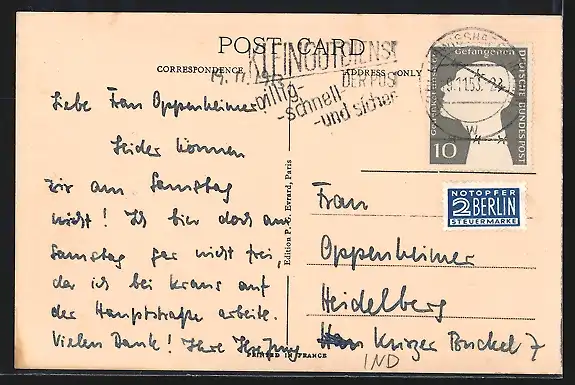 POST CARD
CORRESPONDENCE
ADDRESS ONLY
KLEINGUTDIENST
DER POST
billig-
-schnell
-und sicher
10
DEUTSCHE BUNDESPOST
.11.53.
w
NOTOPFER
2 BERLIN
STEUERMARKE
14. 11. 1953
Liebe Frau Oppenheimer
Leider können
wir am Samstag
nicht! Ich bin doch am
Samstag gar nicht frei,
da ich bei Kraus auf
der Hauptstraße arbeite.
Vielen Dank! Ihre
Edition P. C. Evrard, Paris
PRINTED IN FRANCE
Frau
Oppenheimer
Heidelberg
Buckel 7
IND